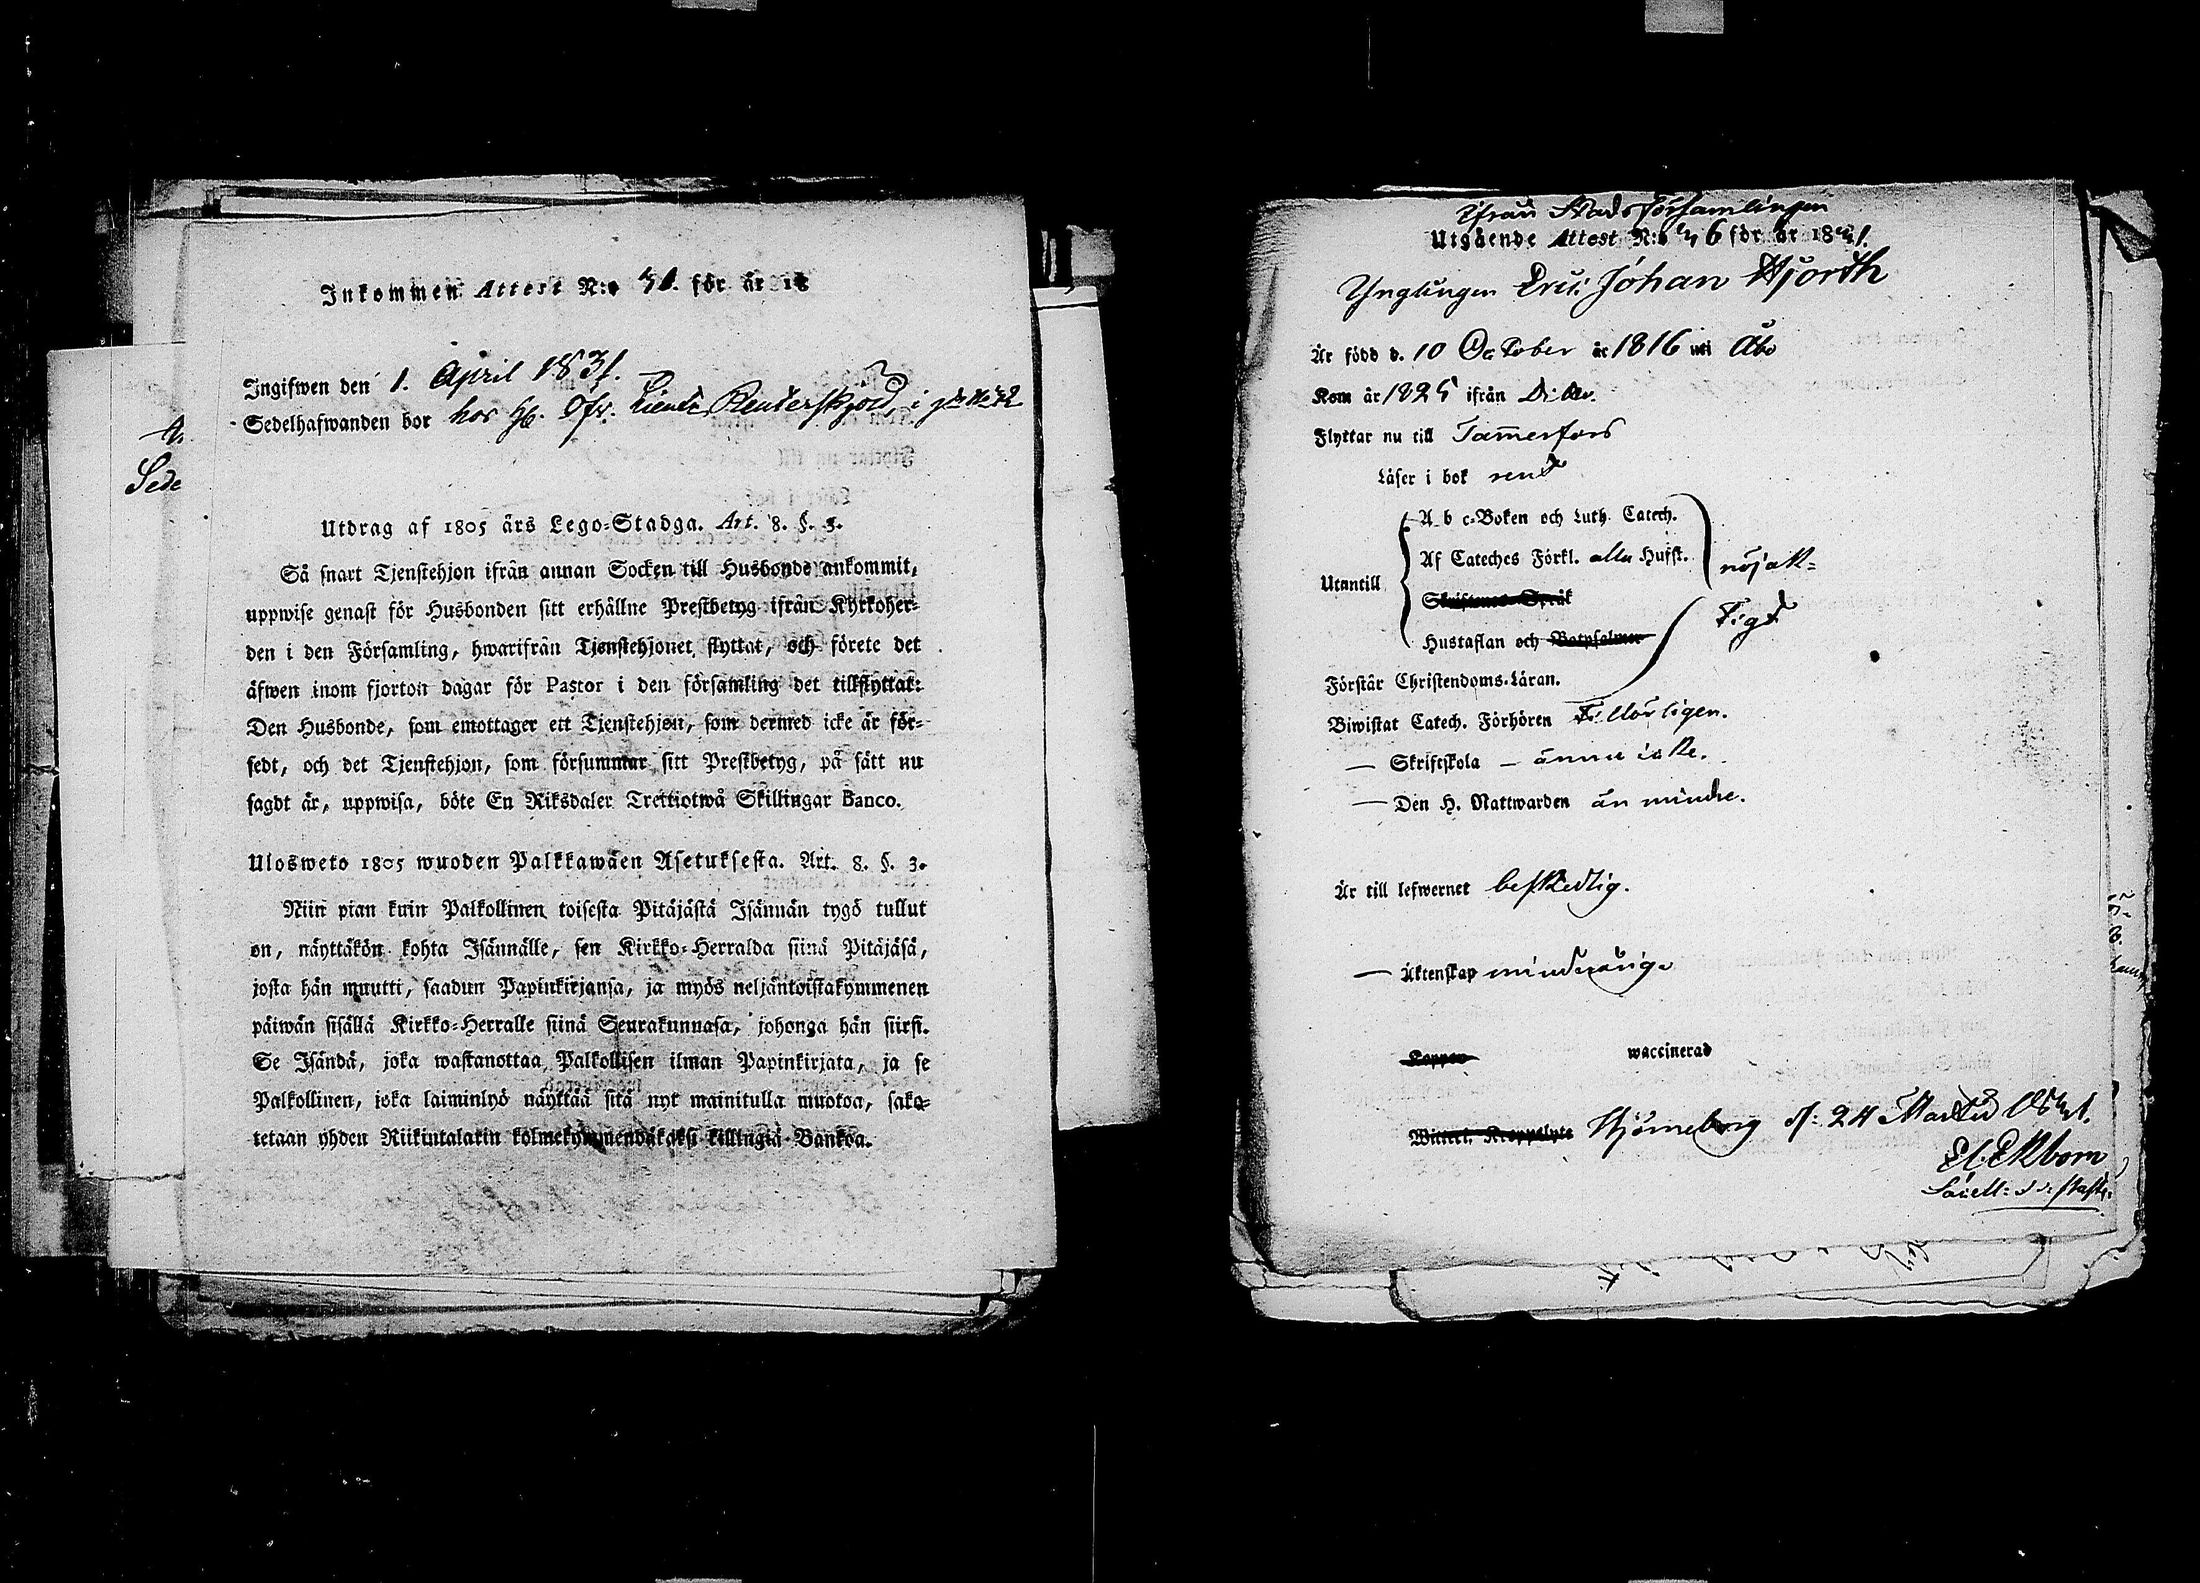 Inkommen Attest N:o 31. för år 18
Ingifwen den 1. April 1831.
Sedelhafwanden bor hos H. Öfv. Lieut: Reuterskjöld, i
Utdrag af 1805 års Lego-Stadga. Art. 8. §. 3.
Så snart Tjenstehjon ifrån annan Socken till Husbonde ankommit,
uppwise genast för Husbonden sitt erhållne Prestbetyg ifrån Kyrkoher-
den i den Församling, hwarifrån Tjenstehjonet flyttat, och förete det
äfwen inom fjorton dagar för Pastor i den församling det tillflyttat:
Den Husbonde, som emottager ett Tjenstehjon, som dermed icke är för-
sedt, och det Tjenstehjon, som försummar sitt Prestbetyg, på sätt nu
sagdt är, uppwisa, böte En Riksdaler Trettiotwå Skillingar Banco.
Ulosweto 1805 wuoden Palkkawäen Asetuksesta. Art. 8. §. 3.
Niin pian kuin Palkollinen toisesta Pitäjästä Isännän tygö tullut
on, näyttäkön kohta Isännälle, sen Kirkko-Herralda siinä Pitäjäsä,
josta hän muutti, saadun Papinkirjansa, ja myös neljäntoistakymmenen
päiwän sisällä Kirkko-Herralle siinä Seurakunnasa, johonga hän siirsi.
Se Isändä, joka wastanottaa Palkollisen ilman Papinkirjata, ja se
Palkollinen, joka laiminlyö näyttää sitä nyt mainitulla muotoa, sako-
tetaan yhden Riikintalarin kolmekymmendäkaksi killingiä Bankoa.
Sede
ifrån Stads församlingen
Utgående Attest N:o 36 för år 1831.
Ynglingen Eric Johan Hjorth
Är född d. 10 October år 1816 uti Åbo
Kom år 1825 ifrån Dito.
Flyttar nu till Tammerfors
Läser i bok rent
A b c-Boken och Luth. Catech.
Af Cateches Förkl. alla Hufst.
nöjak-
Utantill
Skriftenes Språk
tigt
Hustaflan och Botpsalmer
Förstår Christendoms-Läran.
Biwistat Catech. Förhören Tillbörligen.
— Skriftskola — ännu icke.
— Den H. Nattwarden än mindre.
Är till lefwernet beskedlig.
— Äktenskap minderårig
Koppor waccinerad
Wittert. Kroppslyte Björneborg d. 24 Martii 1831.
Ekbom